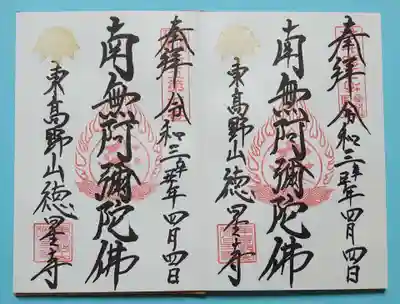 奉拝 令和三丑年四月四日
南無阿彌陀佛
東高野山徳星寺
奉拝 令和三丑年四月四日
南無阿彌陀佛
東高野山徳星寺